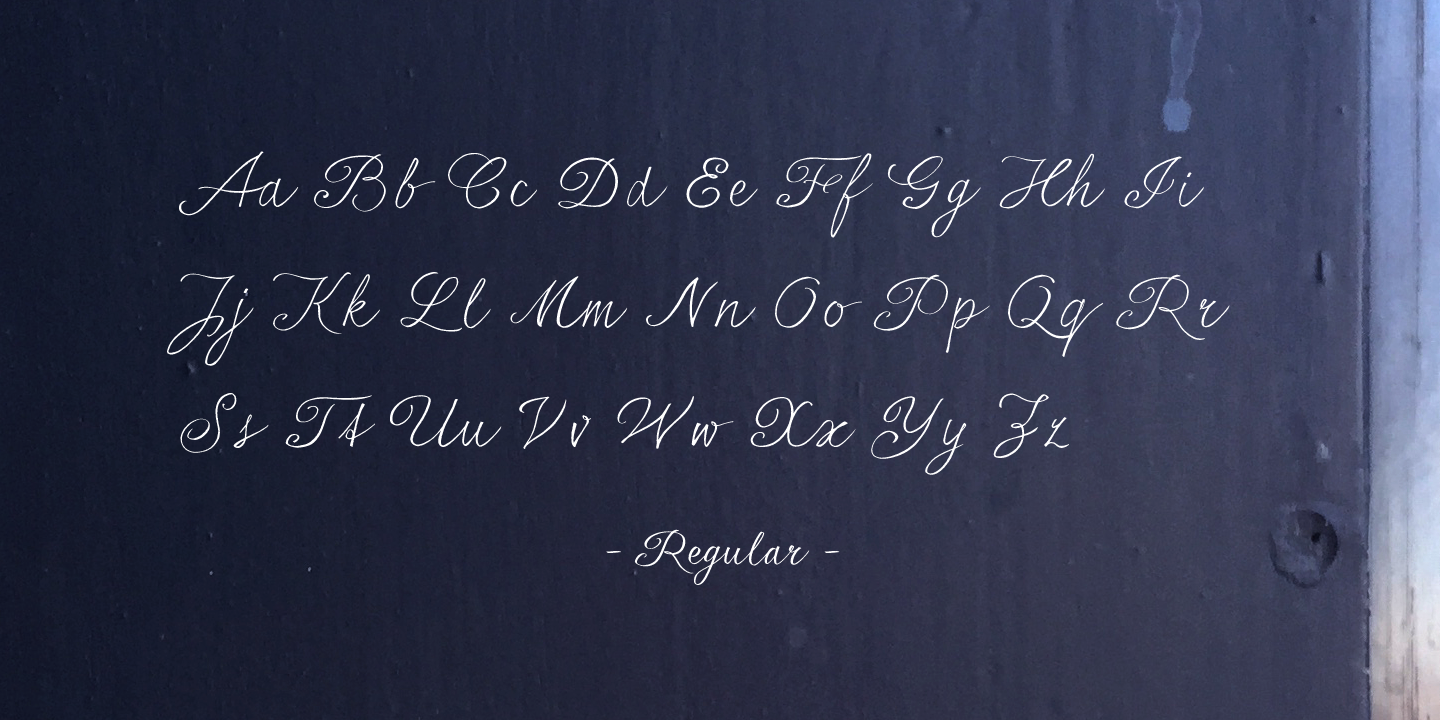 Aa Bb Cc Dd Ee Ff Gg Hh Ii
Jj Kk Ll Mm Nn Oo Pp Qq Rr
Ss Tt Uu Vv Ww Xx Yy Zz
- Regular -